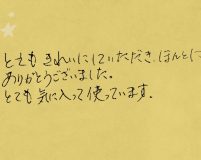 とてもきれいにしていただき ほんとに
ありがとうございました。
とても気に入って使っています。